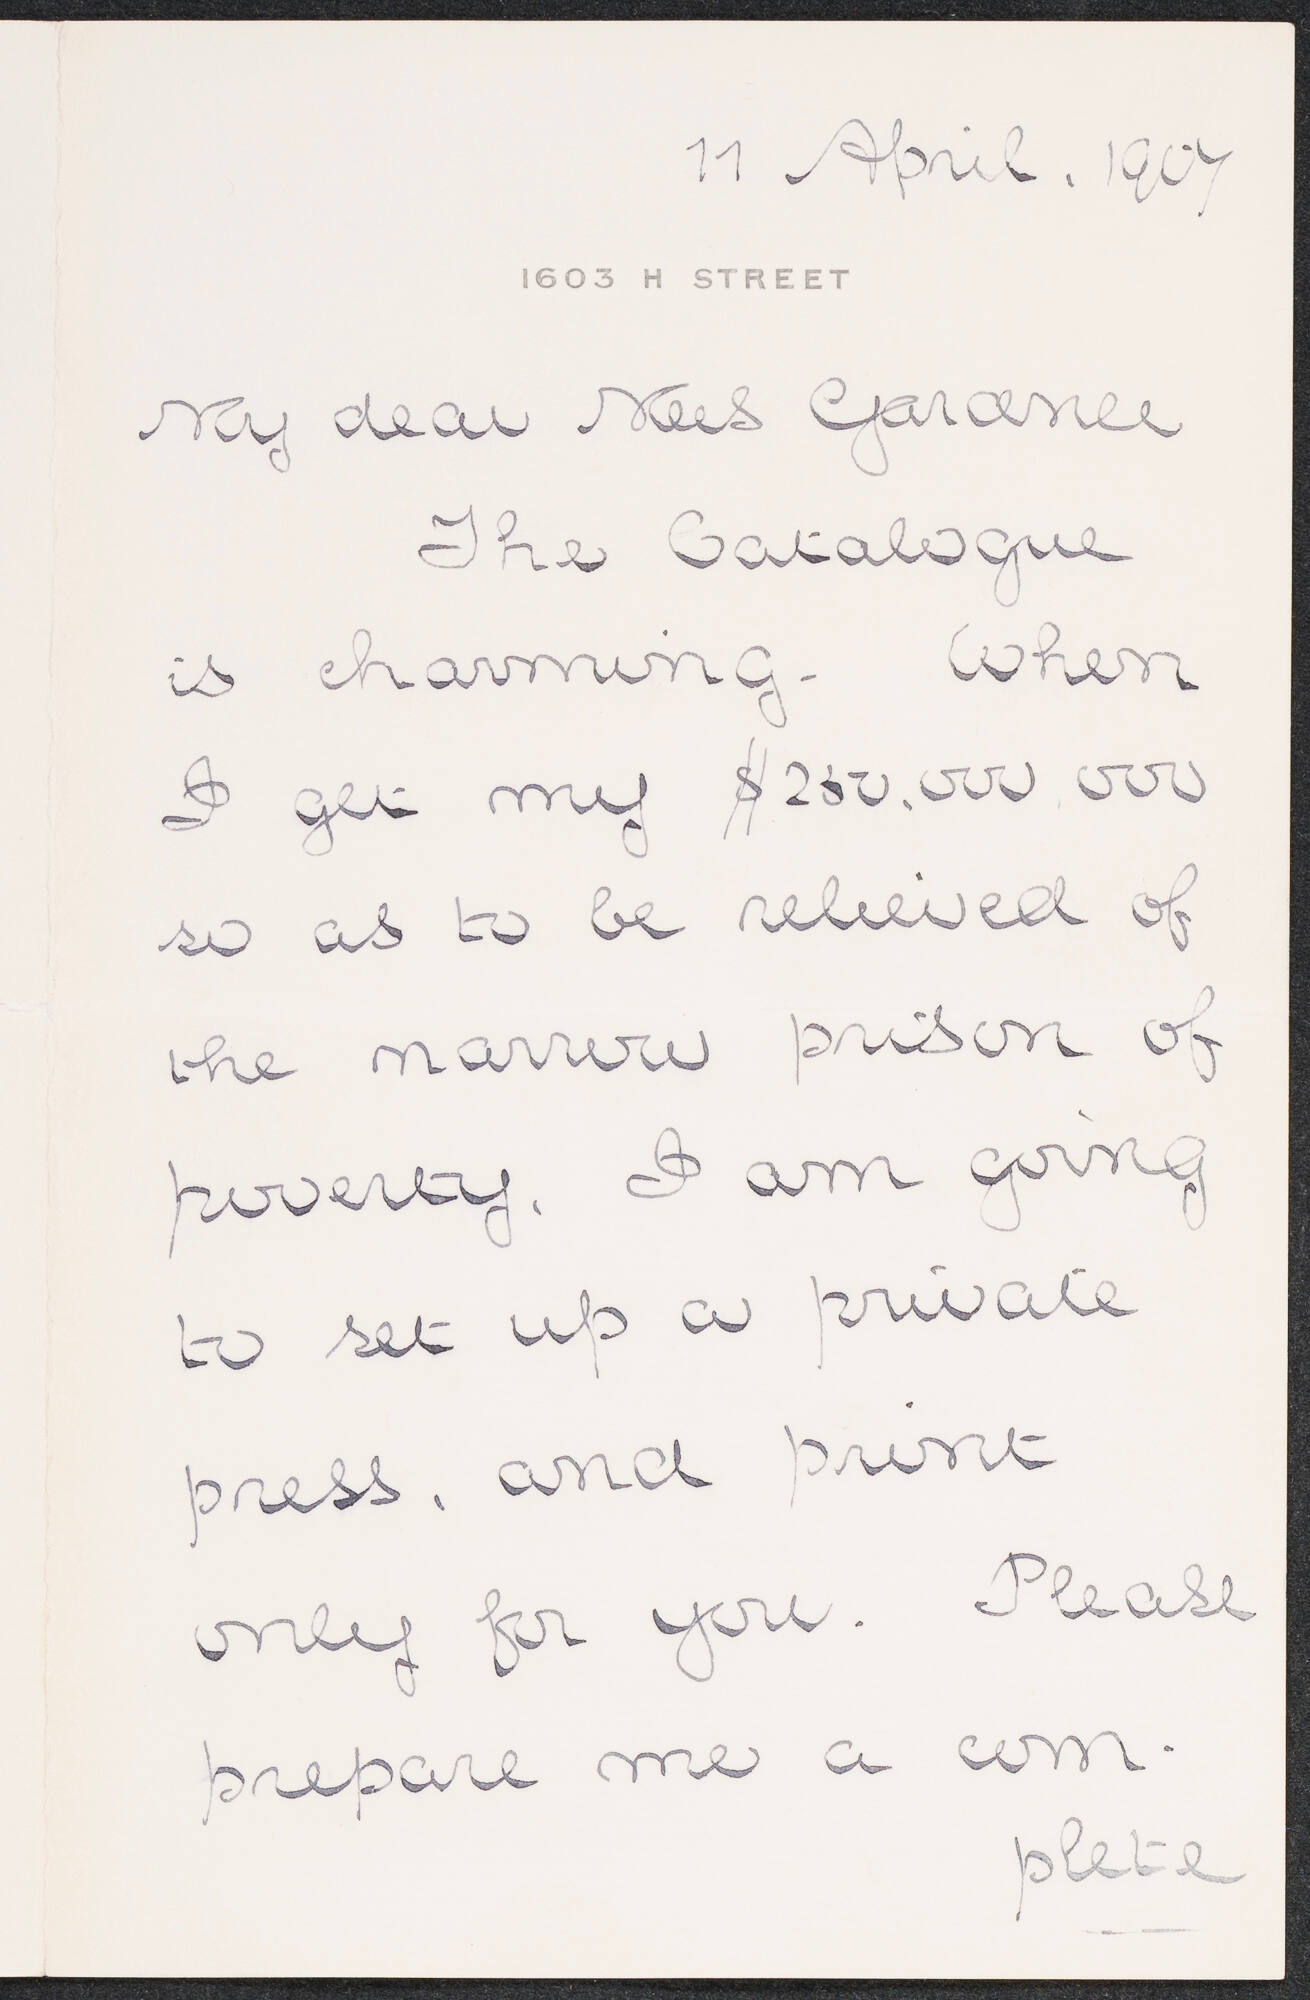 11 April. 1907
1603 H STREET
My dear Mrs Gardner
The Catalogue
is charming. When
I get my $250.000.000
so as to be relieved of
the narrow prison of
poverty, I am going
to set up a private
press, and print
only for you. Please
prepare me a com-
plete